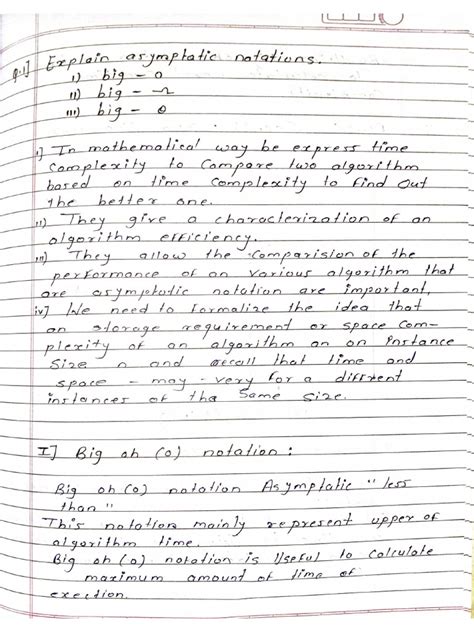 Q.1] Explain asymptatic notations.
i) big - o
ii) big - Ω
iii) big - θ
i] In mathematical way be express time
complexity to compare two algorithm
based on time complexity to find out
the better one.
ii) They give a characterization of an
algorithm efficiency.
iii) They allow the comparision of the
performance of an various algorithm that
are asymptotic notation are important,
iv] We need to formalize the idea that
an storage requirement or space com-
plexity of an algorithm on an instance
size n and recall that time and
space - may - very for a diffrent
instances of the same size.
I] Big oh (o) notation :
Big oh (o) notation Asymptatic " less
than "
This notation mainly represent upper of
algorithm time.
Big oh (o) notation is Useful to calculate
maximum amount of time of
exection.